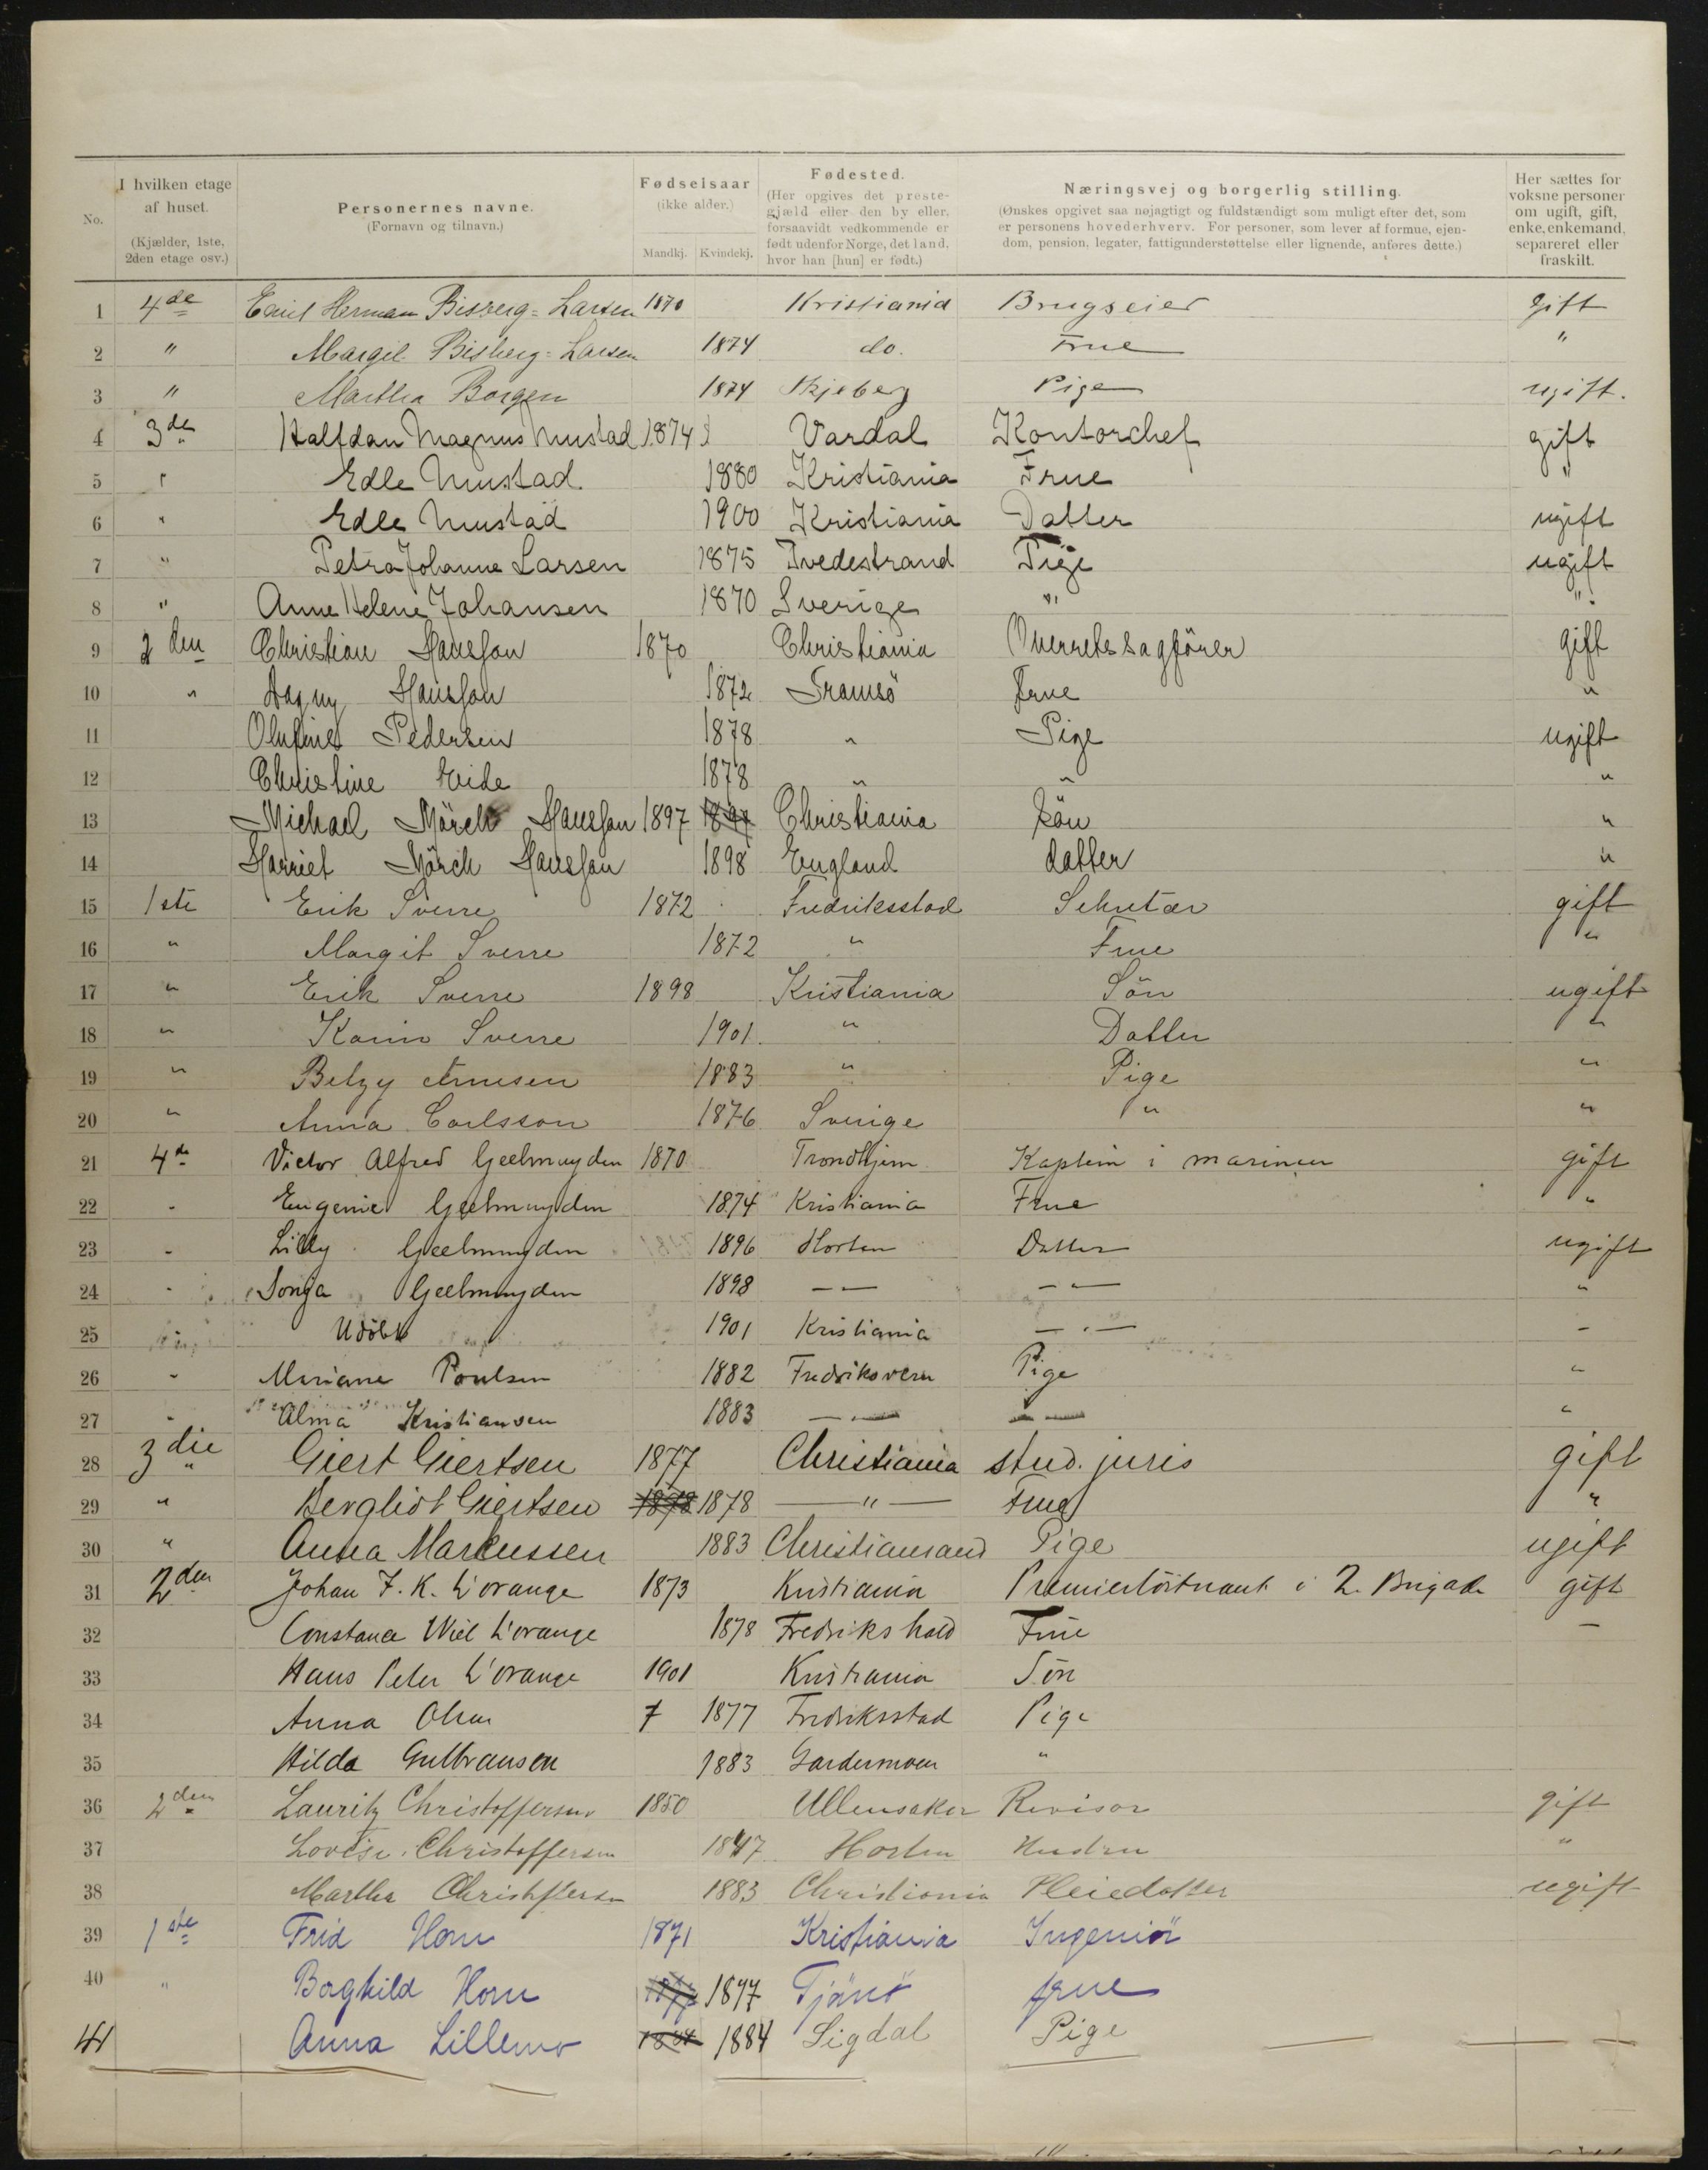 No. I hvilken etage af huset. (Kjælder, 1ste, 2den etage osv.) Personernes navne. (Fornavn og tilnavn.) Fødselsaar (ikke alder.) Mandkj. Kvindekj. Fødested. (Her opgives det prestegjæld eller den by eller, forsaavidt vedkommende er født udenfor Norge, det land, hvor han [hun] er født.) Næringsvej og borgerlig stilling. (Ønskes opgivet saa nøjagtigt og fuldstændigt som muligt efter det, som er personens hovederhverv. For personer, som lever af formue, ejendom, pension, legater, fattigunderstøttelse eller lignende, anføres dette.) Her sættes for voksne personer om ugift, gift, enke, enkemand, separeret eller fraskilt.
1 4de Emil Herman Bisberg=Larsen 1870 Kristiania Brugseier gift
2 " Margit Bisberg=Larsen 1874 do. Frue "
3 " Martha Borgen 1874 Skjeberg Pige ugift.
4 3de Halfdan Magnus Mustad 1874 Vardal Kontorchef gift
5 " Edle Mustad. 1880 Kristiania Frue "
6 " Edle Mustad 1900 Kristiania Datter ugift
7 " Petra Johanne Larsen 1875 Tvedestrand Pige ugift
8 " Anne Helene Johansen 1870 Sverige " "
9 2den Christian Hansson 1870 Christiania Overretssagfører gift
10 " Dagny Hansson 1872 Tromsö Frue "
11 Olufine Pedersen 1878 " Pige ugift
12 Christine Eide 1878 " " "
13 Michael Mörch Hansson 1897 Christiania Sön "
14 Harriet Mörch Hansson 1898 England datter "
15 1ste Erik Sverre 1872 Fredriksstad Sekretær gift
16 " Margit Sverre 1872 " Frue "
17 " Erik Sverre 1898 Kristiania Sön ugift
18 " Karin Sverre 1901 " Datter "
19 " Betzy Arnesen 1883 " Pige "
20 " Anna Carlsson 1876 Sverige " "
21 4de Victor Alfred Geelmuyden 1870 Trondhjem Kaptein i marinen gift
22 - Eugenie Geelmuyden 1874 Kristiania Frue "
23 - Lilly Geelmuyden 1896 Horten Datter ugift
24 - Sonja Geelmuyden 1898 — — "
25 - Udöbt 1901 Kristiania — -
26 - Mariane Poulsen 1882 Fredriksværn Pige "
27 - Alma Kristiansen 1883 — — "
28 3die Giert Giertsen 1877 Christiania stud. juris gift
29 " Bergliot Giertsen 1878 1878 —"— Frue "
30 " Anna Markussen 1883 Christiansand Pige ugift
31 2den Johan F. K. L'orange 1873 Kristiania Premierløitnant i 2. Brigade gift
32 Constance Wiel L'orange 1878 Fredrikshald Frue —
33 Hans Peter L'orange 1901 Kristiania Sön
34 Anna Olsen 7 1877 Fredriksstad Pige
35 Hilda Gulbransen 1883 Gardermoen "
36 2den Lauritz Christoffersen 1850 Ullensaker Revisor gift
37 Lovise Christoffersen 1847 Horten Hustru "
38 Martha Christoffersen 1883 Christiania Pleiedatter ugift
39 1ste Frid Horn 1871 Kristiania Ingeniör
40 " Borghild Horn 1877 Tjömö frue
41 Anna Lillemo 1884 1884 Sigdal Pige